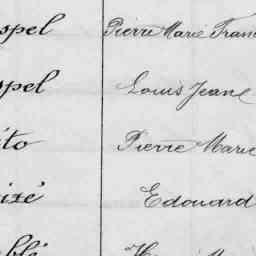 spel Pierre Marie Fran
spel Louis Jean
ito Pierre Marie
izé Edouard
blé